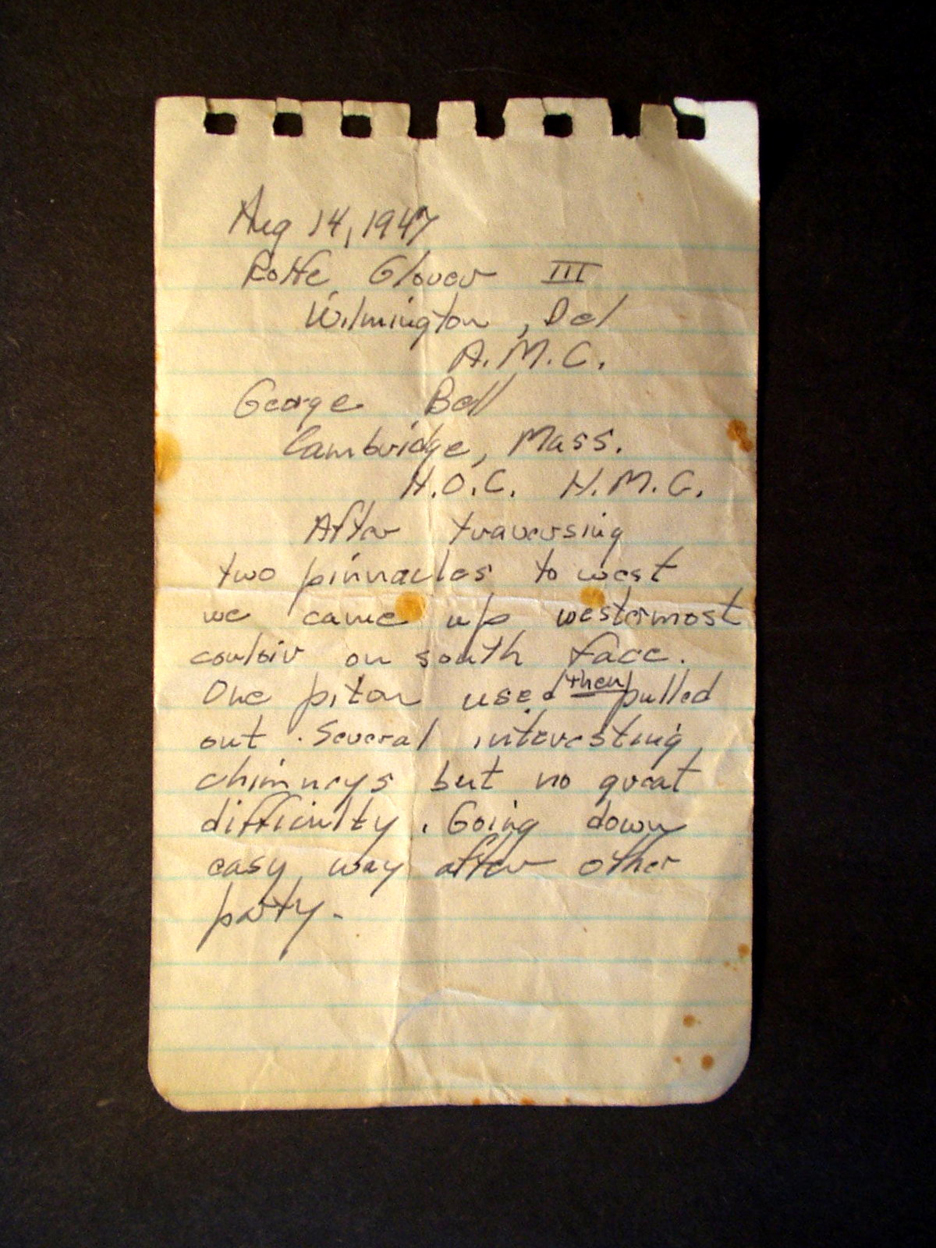 Aug 14, 1947
Rolfe Glover III
Wilmington, Del
A.M.C.
George Bell
Cambridge, Mass.
H.O.C. H.M.C.
After traversing
two pinnacles to west
we came up westermost
couloir on south face.
One piton used then pulled
out. Several interesting
chimneys but no great
difficulty. Going down
easy way after other
party.